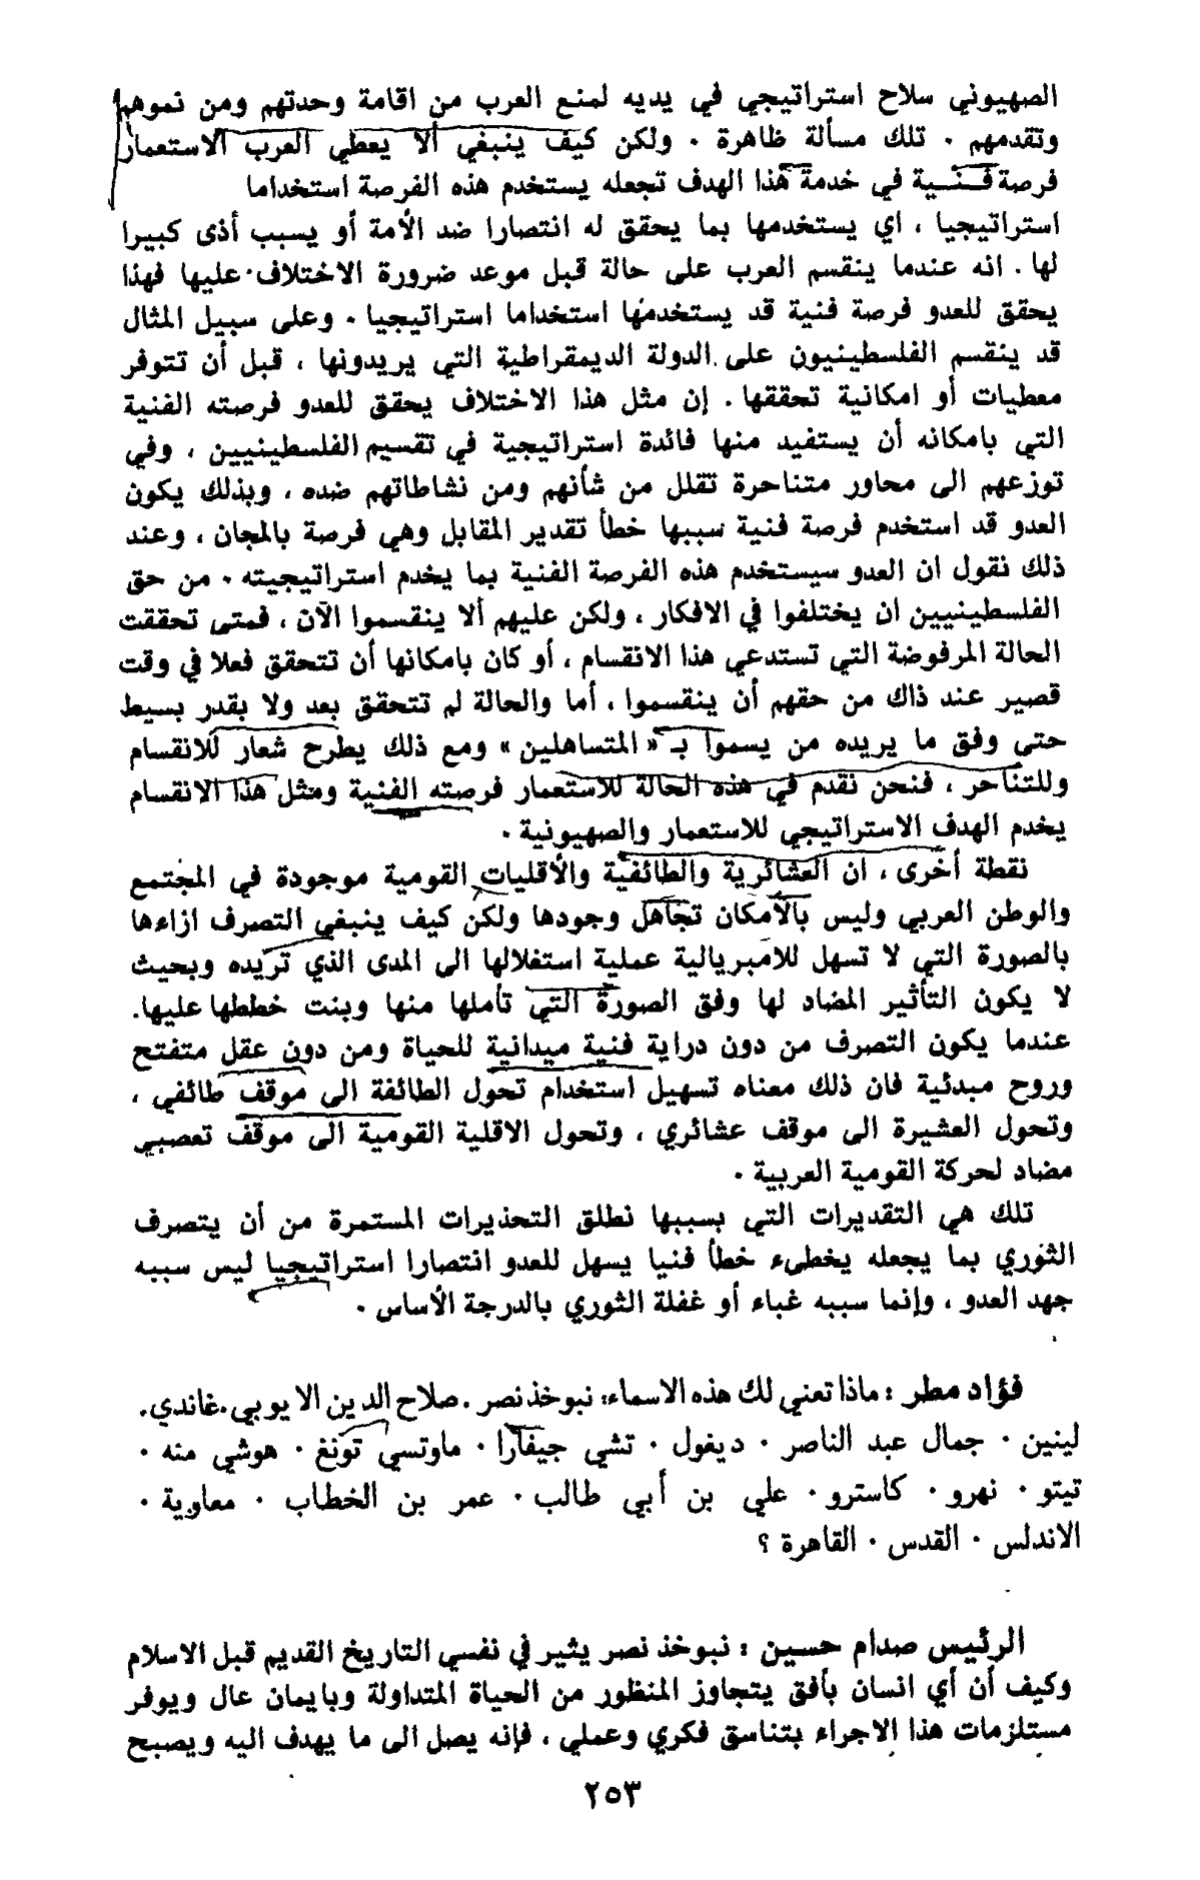 الصهيوني سلاح استراتيجي في يديه لمنع العرب من اقامة وحدتهم ومن نموهم
وتقدمهم . تلك مسألة ظاهرة . ولكن كيف ينبغي ألا يعطي العرب الاستعمار
فرصة فنية في خدمة هذا الهدف تجعله يستخدم هذه الفرصة استخداما
استراتيجيا ، اي يستخدمها بما يحقق له انتصارا ضد الأمة أو يسبب أذى كبيرا
لها . انه عندما ينقسم العرب على حالة قبل موعد ضرورة الاختلاف عليها فهذا
يحقق للعدو فرصة فنية قد يستخدمها استخداما استراتيجيا . وعلى سبيل المثال
قد ينقسم الفلسطينيون على الدولة الديمقراطية التي يريدونها ، قبل أن تتوفر
معطيات أو امكانية تحققها . إن مثل هذا الاختلاف يحقق للعدو فرصته الفنية
التي بامكانه أن يستفيد منها فائدة استراتيجية في تقسيم الفلسطينيين ، وفي
توزعهم الى محاور متناحرة تقلل من شأنهم ومن نشاطاتهم ضده ، وبذلك يكون
العدو قد استخدم فرصة فنية سببها خطأ تقدير المقابل وهي فرصة بالمجان ، وعند
ذلك نقول ان العدو سيستخدم هذه الفرصة الفنية بما يخدم استراتيجيته . من حق
الفلسطينيين ان يختلفوا في الافكار ، ولكن عليهم ألا ينقسموا الآن ، فمتى تحققت
الحالة المرفوضة التي تستدعي هذا الانقسام ، أو كان بامكانها أن تتحقق فعلا في وقت
قصير عند ذاك من حقهم أن ينقسموا ، أما والحالة لم تتحقق بعد ولا بقدر بسيط
حتى وفق ما يريده من يسموا بـ « المتساهلين » ومع ذلك يطرح شعار للانقسام
وللتناحر ، فنحن نقدم في هذه الحالة للاستعمار فرصته الفنية ومثل هذا الانقسام
يخدم الهدف الاستراتيجي للاستعمار والصهيونية .
نقطة أخرى ، ان العشائرية والطائفية والأقليات القومية موجودة في المجتمع
والوطن العربي وليس بالأمكان تجاهل وجودها ولكن كيف ينبغي التصرف ازاءها
بالصورة التي لا تسهل للامبريالية عملية استغلالها الى المدى الذي تريده وبحيث
لا يكون التأثير المضاد لها وفق الصورة التي تأملها منها وبنت خططها عليها.
عندما يكون التصرف من دون دراية فنية ميدانية للحياة ومن دون عقل متفتح
وروح مبدئية فان ذلك معناه تسهيل استخدام تحول الطائفة الى موقف طائفي ،
وتحول العشيرة الى موقف عشائري ، وتحول الاقلية القومية الى موقف تعصبي
مضاد لحركة القومية العربية .
تلك هي التقديرات التي بسببها نطلق التحذيرات المستمرة من أن يتصرف
الثوري بما يجعله يخطىء خطأ فنيا يسهل للعدو انتصارا استراتيجيا ليس سببه
جهد العدو ، وإنما سببه غباء أو غفلة الثوري بالدرجة الأساس .
فؤاد مطر : ماذا تعني لك هذه الاسماء: نبوخذ نصر . صلاح الدين الايوبي . غاندي.
لينين . جمال عبد الناصر . ديغول . تشي جيفارا . ماوتسي تونغ . هوشي منه .
تيتو . نهرو . كاسترو . علي بن أبي طالب . عمر بن الخطاب . معاوية .
الاندلس . القدس . القاهرة ؟
الرئيس صدام حسين : نبوخذ نصر يثير في نفسي التاريخ القديم قبل الاسلام
وكيف أن أي انسان بأفق يتجاوز المنظور من الحياة المتداولة وبايمان عال ويوفر
مستلزمات هذا الاجراء بتناسق فكري وعملي ، فإنه يصل الى ما يهدف اليه ويصبح
٢٥٣